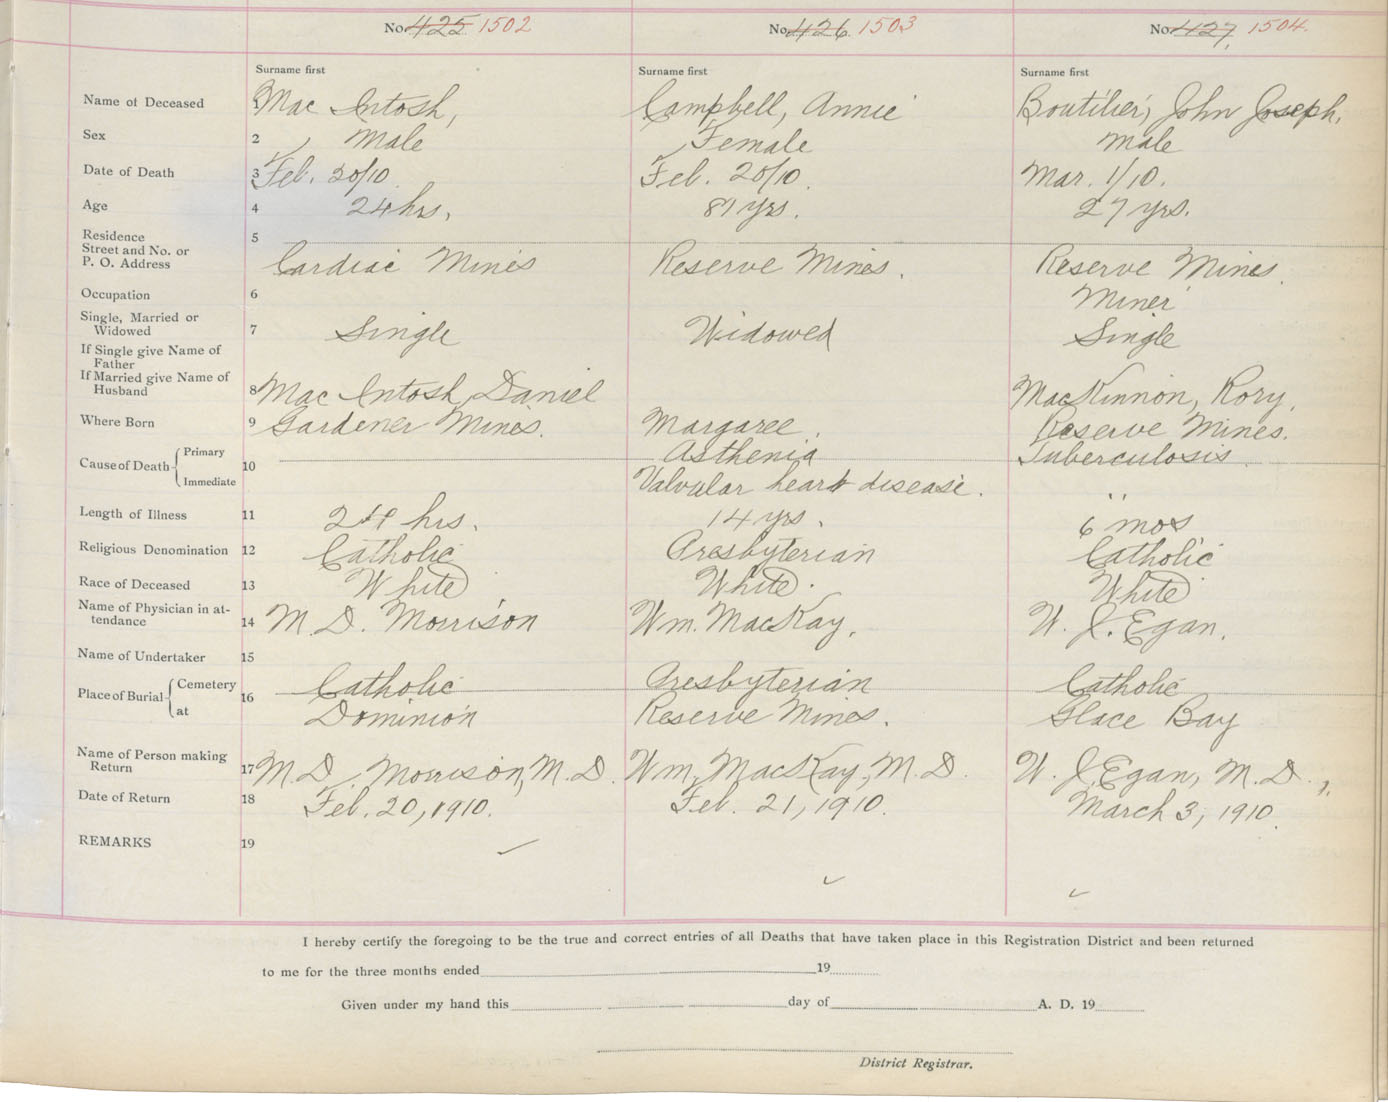 No. 425 1502
No. 426 1503
No. 427 1504.
Surname first
Surname first
Surname first
Name of Deceased 1 Mac Intosh, Campbell, Annie Boutilier, John Joseph.
Sex 2 Male Female Male
Date of Death 3 Feb. 20/10. Feb. 20/10. Mar. 1/10.
Age 4 24 hrs. 81 yrs. 27 yrs.
Residence 5
Street and No. or
P. O. Address Cardiac Mines Reserve Mines. Reserve Mines.
Occupation 6 Miner
Single, Married or
Widowed 7 Single Widowed Single
If Single give Name of
Father
If Married give Name of
Husband 8 Mac Intosh, Daniel MacKinnon, Rory.
Where Born 9 Gardener Mines. Margaree. Reserve Mines.
Cause of Death Primary 10 Asthenia Tuberculosis
Immediate Valvular heart disease. "
Length of Illness 11 24 hrs. 14 yrs. 6 mos
Religious Denomination 12 Catholic Presbyterian Catholic
Race of Deceased 13 White White. White
Name of Physician in at-
tendance 14 M. D. Morrison Wm. MacKay. W. J. Egan.
Name of Undertaker 15
Place of Burial Cemetery 16 Catholic Presbyterian Catholic
at Dominion Reserve Mines. Glace Bay
Name of Person making
Return 17 M. D. Morrison, M. D. Wm. MacKay, M. D. W. J. Egan, M. D.
Date of Return 18 Feb. 20, 1910. Feb. 21, 1910. March 3, 1910.
REMARKS 19
I hereby certify the foregoing to be the true and correct entries of all Deaths that have taken place in this Registration District and been returned
to me for the three months ended 19
Given under my hand this day of A. D. 19
District Registrar.